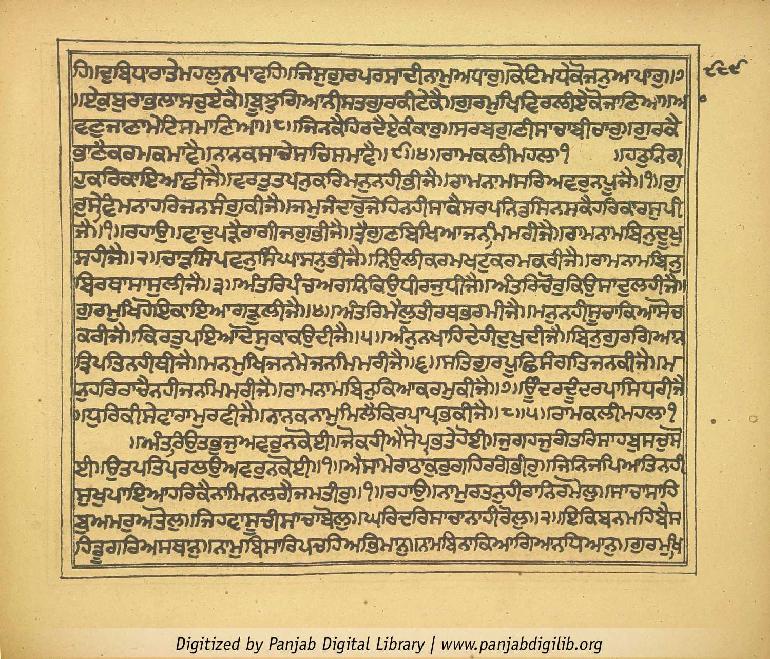 ਹਿ॥ਦੁਬਿਧਾਰਾਤੇਮਹਲੁਨਪਾਵਹਿ॥ਜਿਸੁਗੁਰਪਰਸਾਦੀਨਾਮੁਅਧਾਰੁ॥ਕੋਟਿਮਧੇਕੋਜਨੁਆਪਾਰੁ॥੭
॥ਏਕੁਬੁਰਾਭਲਾਸਚੁਏਕੈ॥ਬੂਝੁਗਿਆਨੀਸਤਗੁਰਕੀਟੇਕੈ॥ਗੁਰਮੁਖਿਵਿਰਲੀਏਕੋਜਾਣਿਆ॥ਆ
ਵਣੁਜਾਣਾਮੇਟਿਸਮਾਣਿਆ॥੮॥ਜਿਨਕੈਹਿਰਦੈਏਕੰਕਾਰੁ॥ਸਰਬਗੁਣੀਸਾਚਾਬੀਚਾਰੁ॥ਗੁਰਕੈ
ਭਾਣੈਕਰਮਕਮਾਵੈ॥ਨਾਨਕਸਾਚੇਸਾਚਿਸਮਾਵੈ॥੯॥੪॥ਰਾਮਕਲੀਮਹਲਾ੧ ॥ਹਠੁਨਿਗ੍ਰ
ਹੁਕਰਿਕਾਇਆਛੀਜੈ॥ਵਰਤੁਤਪਨੁਕਰਿਮਨੁਨਹੀਭੀਜੈ॥ਰਾਮਨਾਮਸਰਿਅਵਰੁਨਪੂਜੈ॥੧॥ਗੁ
ਰੁਸੇਵਿਮਨਾਹਰਿਜਨਸੰਗੁਕੀਜੈ॥ਜਮੁਜੰਦਾਰੁਜੋਹਿਨਹੀਸਾਕੈਸਰਪਨਿਡਸਿਨਸਕੈਹਰਿਕਾਰਸੁਪੀ
ਜੈ॥੧॥ਰਹਾਉ॥ਵਾਦੁਪੜੈਰਾਗੀਜਗੁਭੀਜੈ॥ਤ੍ਰੈਗੁਣਬਿਖਿਆਜਨਮਿਮਰੀਜੈ॥ਰਾਮਨਾਮਬਿਨੁਦੂਖੁ
ਸਹੀਜੈ॥੨॥ਚਾੜਸਿਪਵਨੁਸਿੰਘਾਸਨੁਭੀਜੈ॥ਨਿਉਲੀਕਰਮਖਟੁਕਰਮਕਰੀਜੈ॥ਰਾਮਨਾਮਬਿਨੁ
ਬਿਰਥਾਸਾਸੁਲੀਜੈ॥੩॥ਅੰਤਰਿਪੰਚਅਗਨਿਕਿਉਧੀਰਜੁਧੀਜੈ॥ਅੰਤਰਿਚੋਰੁਕਿਉਸਾਦੁਲਹੀਜੈ॥
ਗੁਰਮੁਖਿਹੋਇਕਾਇਆਗੜੁਲੀਜੈ॥੪॥ਅੰਤਰਿਮੈਲੁਤੀਰਥਭਰਮੀਜੈ॥ਮਨੁਨਹੀਸੂਚਾਕਿਆਸੋਚ
ਕਰੀਜੈ॥ਕਿਰਤੁਪਇਆਦੋਸੁਕਾਕਉਦੀਜੈ॥੫॥ਅੰਨੁਨਖਾਹਿਦੇਹੀਦੁਖੁਦੀਜੈ॥ਬਿਨੁਗੁਰਗਿਆਨ
ਤ੍ਰਿਪਤਿਨਹੀਥੀਜੈ॥ਮਨਮੁਖਿਜਨਮੇਜਨਮਿਮਰੀਜੈ॥੬॥ਸਤਿਗੁਰਪੂਛਿਸੰਗਤਿਜਨਕੀਜੈ॥ਮ
ਨੁਹਰਿਰਾਚੈਨਹੀਜਨਮਿਮਰੀਜੈ॥ਰਾਮਨਾਮਬਿਨੁਕਿਆਕਰਮੁਕੀਜੈ॥੭॥ਊਂਦਰਦੂੰਦਰਪਾਸਿਧਰੀਜੈ
॥ਧੁਰਕੀਸੇਵਾਰਾਮੁਰਵੀਜੈ॥ਨਾਨਕਨਾਮੁਮਿਲੈਕਿਰਪਾਪ੍ਰਭਕੀਜੈ॥੮॥੫॥ਰਾਮਕਲੀਮਹਲਾ੧
॥ਅੰਤਰਿਉਤਭੁਜੁਅਵਰੁਨਕੋਈ॥ਜੋਕਹੀਐਸੋਪ੍ਰਭਤੇਹੋਈ॥ਜੁਗਹਜੁਗੰਤਰਿਸਾਹਬੁਸਚੁਸੋ
ਈ॥ਉਤਪਤਿਪਰਲਉਅਵਰੁਨਕੋਈ॥੧॥ਐਸਾਮੇਰਾਠਾਕੁਰੁਗਹਿਰਗੰਭੀਰੁ॥ਜਿਨਿਜਪਿਆਤਿਨਹੀ
ਸੁਖੁਪਾਇਆਹਰਿਕੈਨਾਮਿਨਲਗੈਜਮਤੀਰੁ॥੧॥ਰਹਾਉ॥ਨਾਮੁਰਤਨੁਹੀਰਾਨਿਰਮੋਲੁ॥ਸਾਚਾਸਾਹਿ
ਬੁਅਮਰੁਅਤੋਲੁ॥ਜਿਹਵਾਸੂਚੀਸਾਚਾਬੋਲੁ॥ਘਰਿਦਰਿਸਾਚਾਨਾਹੀਰੋਲੁ॥੨॥ਇਕਿਬਨਮਹਿਬੈਸ
ਹਿਡੂਗਰਿਅਸਥਾਨੁ॥ਨਾਮੁਬਿਸਾਰਿਪਚਹਿਅਭਿਮਾਨੁ॥ਨਾਮਬਿਨਾਕਿਆਗਿਆਨਧਿਆਨੁ॥ਗੁਰਮੁਖਿ
Digitized by Panjab Digital Library | www.panjabdigilib.org